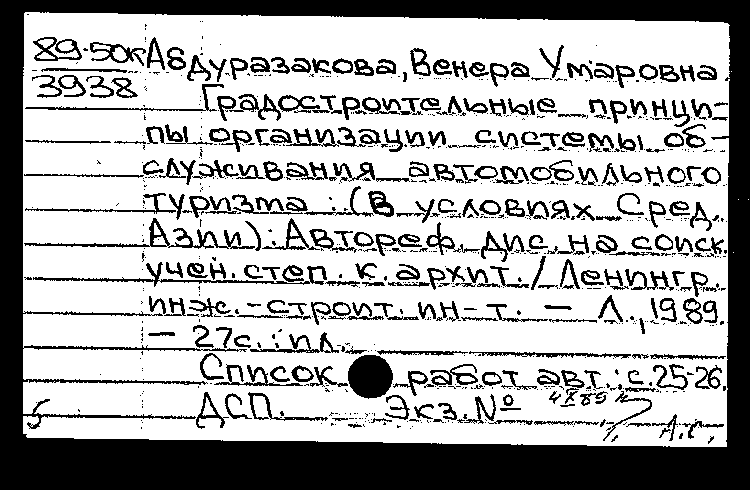 89-50к Абдуразакова, Венера Умаровна
3938
Градостроительные принци-
пы организации системы об-
служивания автомобильного
туризма : (В условиях Сред.
Азии) : Автореф. дис. на соиск.
учен. степ. к. архит. / Ленингр.
инж.-строит. ин-т. — Л., 1989.
— 27с. : ил.
Список работ авт. : с. 25-26.
ДСП. Экз. №
5 А.С.